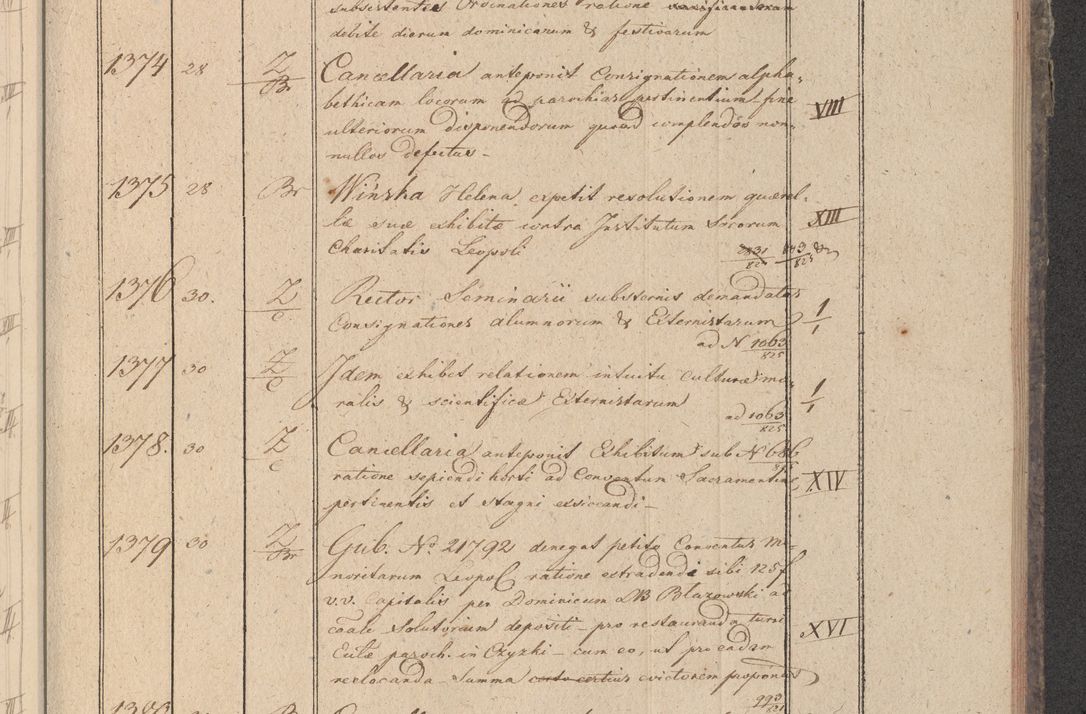 subsistentis Ordinationes ratione
debite dierum dominicarum & festivarum
1374 28 Z/Br Cancellaria anteponit Consignationem alpha-
bethicam locorum ad parochias pertinentium fine VIII
ulteriorum disponendorum quoad complendos non-
nullos defectus -
1375 28 Br Wińska Helena expetit resolutionem querel-
læ suæ exhibitæ contra Institutum Sororum XIII
Charitatis Leopoli 843/825
1376 30. Z/C Rector Seminarii substernit demandatas
Consignationes alumnorum & Externistarum 1/1
ad N 1063/825
1377 30 Z/C Idem exhibet relationem intuitu culturæ mo-
ralis & scientificæ Externistarum 1/1
ad 1063/825
1378. 30 Z/C Cancellaria anteponit Exhibitum sub N 686
ratione sepiendi horti ad Conventum Sacramentinæ XIV
pertinentis et stagni exsiccandi -
1379 30 Z/Br Gub. No 21792 denegat petito Conventus Mi-
noritarum Leopol ratione extradendi sibi 125f
v.v. Capitalis per Dominicum Błazowski ad
solutorum depositi - pro restauranda turri XVI
paroch. in Czyzki - cum eo, ut pro eadem
relocanda summa certo certius evictorem proponat